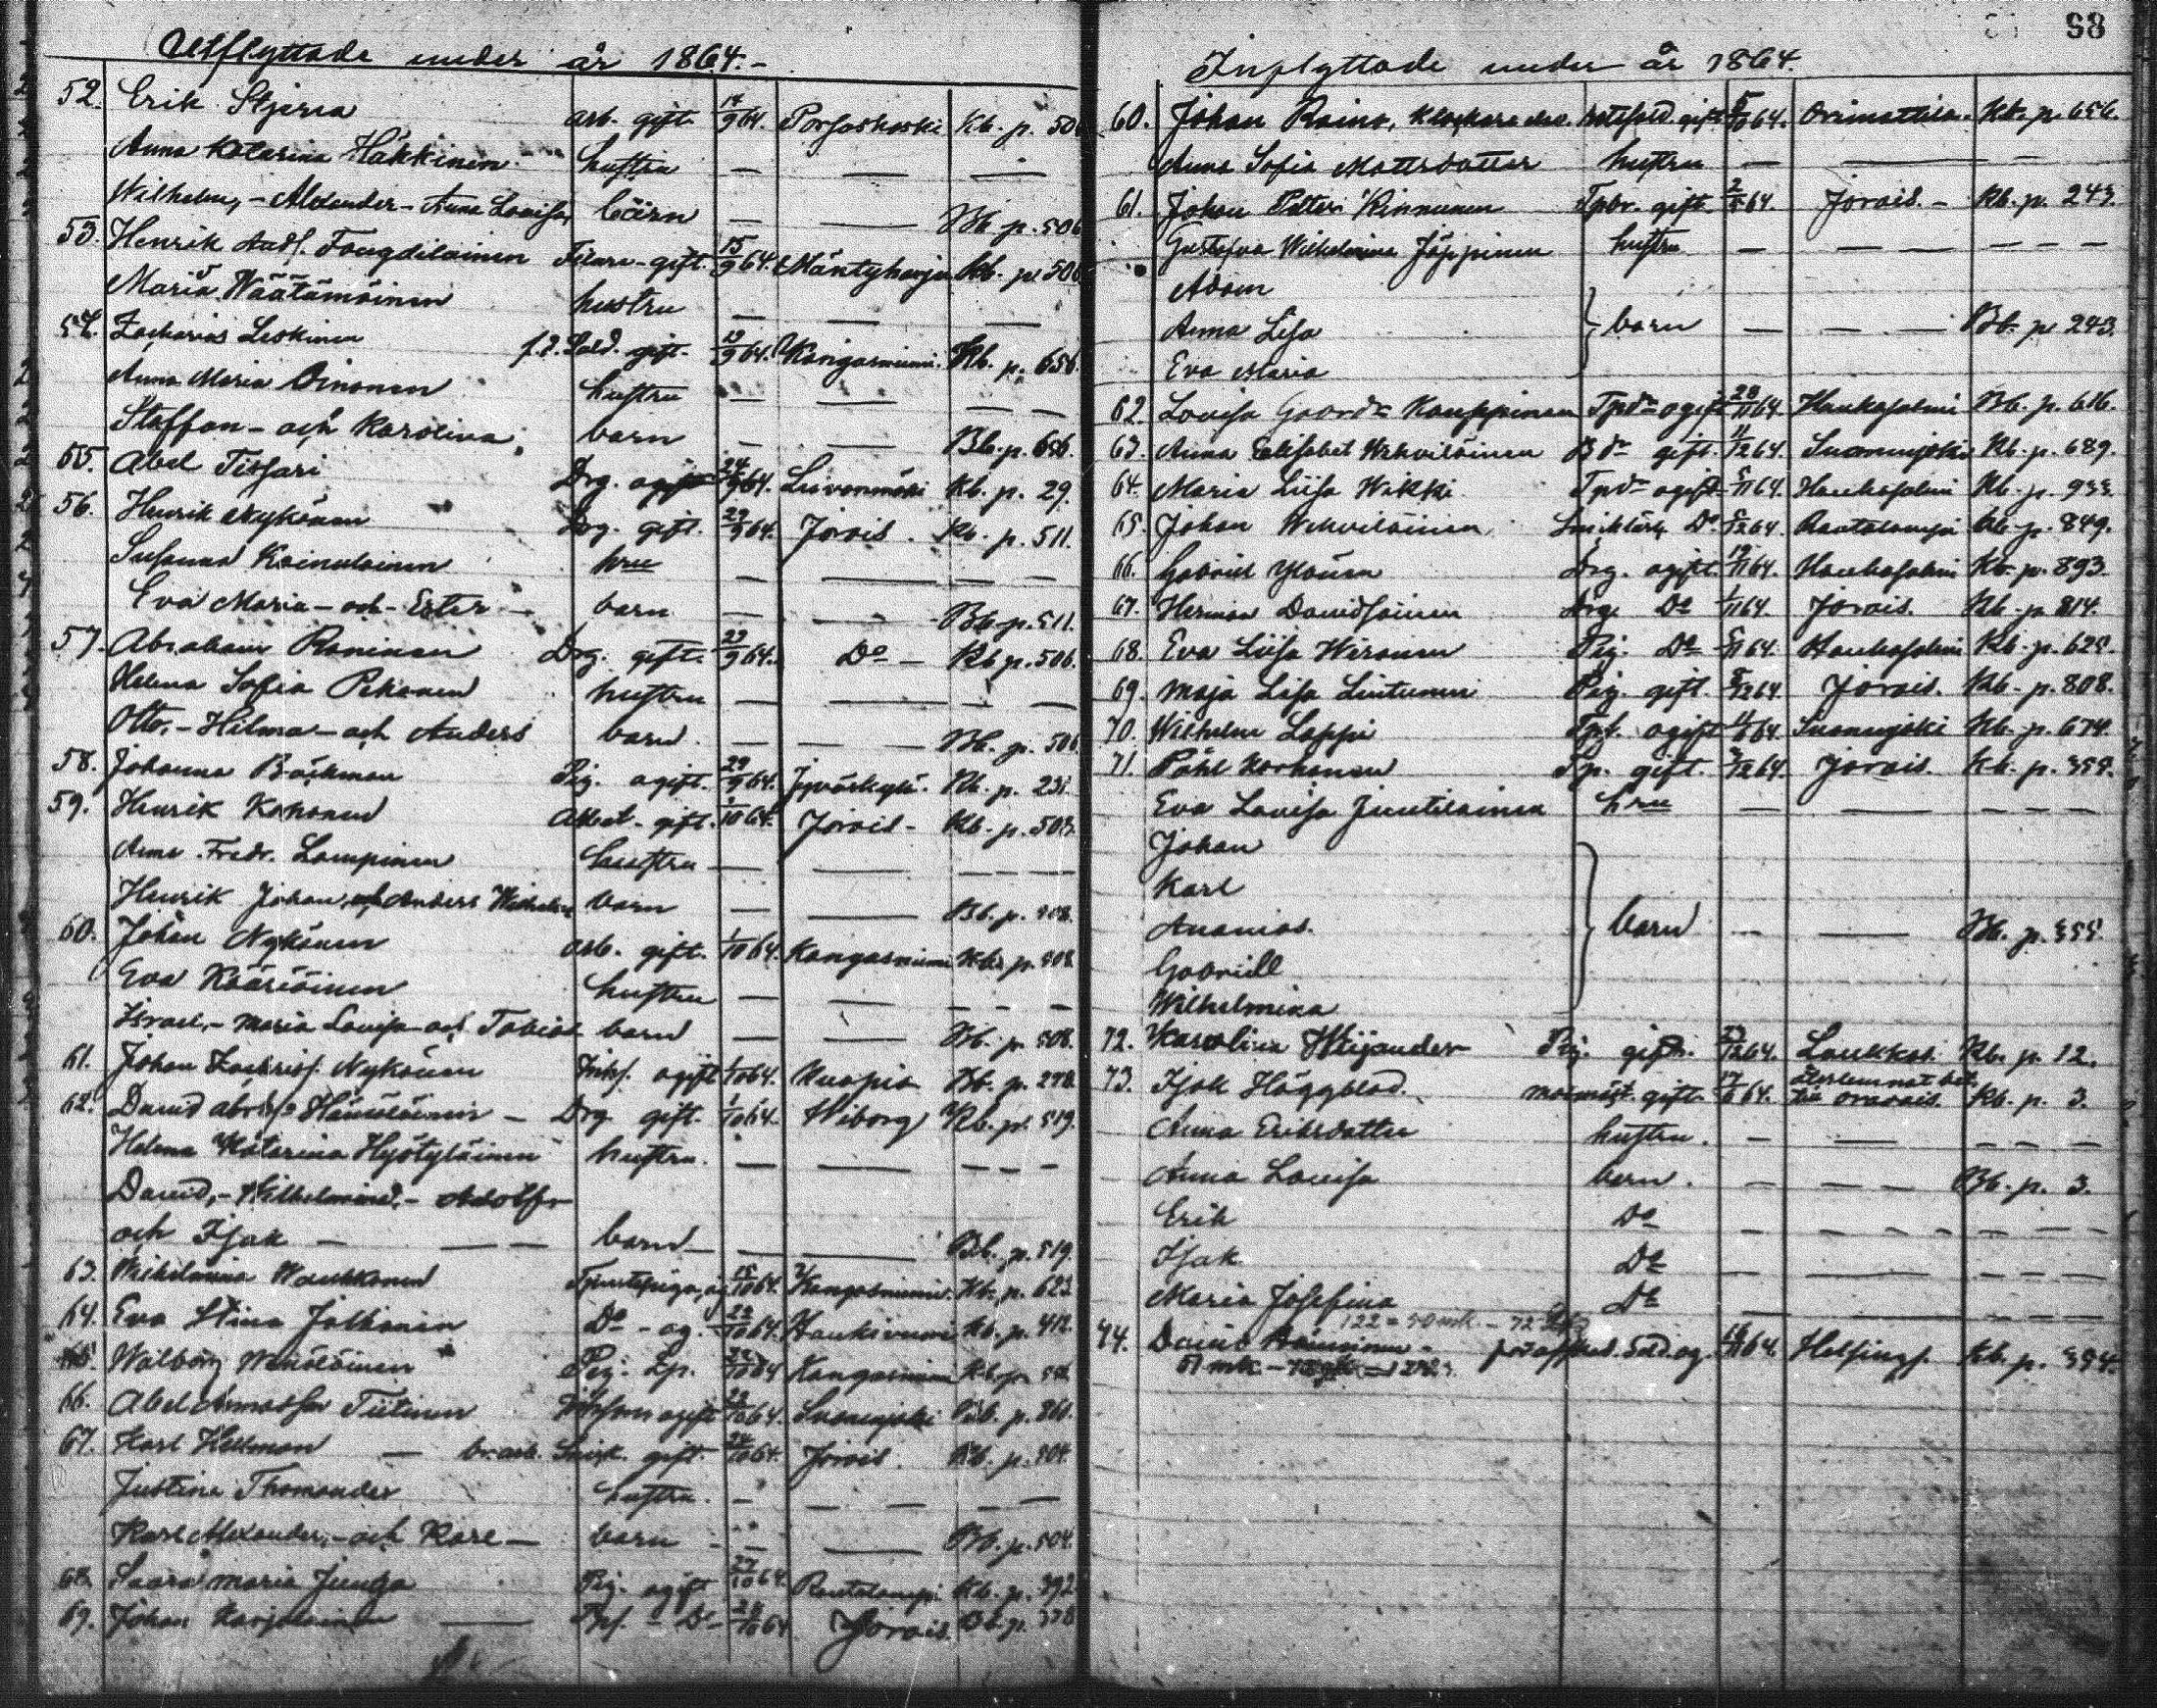 Utflyttade under år 1864.-
52. Erik Stjerna arb. gift. 14/9 64. Porsaskoski Kb. p. 506
Anna Katarina Häkkinen hustru — — —
Wilhelm, - Alexander - Anna Lovisa, börn — — Bb. p. 506
53. Henrik Fougdilainen gift. 15/9 64. Mäntyharju Kb. p. 506
Maria Väätämöinen hustru — — —
54. Zacharias Leskinen f.d. Sold. gift. 19/9 64. Kangasniemi. Kb. p. 656.
Anna Maria Oinonen hustru — — — —
Staffan - och Karolina, barn — — Bb. p. 656.
55. Abel Tissari Drg. ogift 24/9 64. Leivonmäki Kb. p. 29.
56. Henrik Nykänen Drg. gift. 29/9 64. Jorois. Kb. p. 511.
Susanna Kainulainen hru — — — —
Eva Maria - och - Ester — barn — — Bb. p. 511.
57. Abraham Roninen Drg. gift. 29/9 64. Do — Kb p. 506.
Helena Sofia Pekonen hustru — — — —
Otto, - Hilma - och Anders barn. — — — Bb. p. 506
58. Johanna Bäckman Pig. ogift. 29/9 64. Jyväskylä. Kb. p. 231.
59. Henrik Kohonen gift. 1/10 64. Jorois - Kb. p. 508.
Anna Fredr. Lampinen hustru — — — — —
Henrik Johan, och Anders Wilhelm barn — — Bb. p. 508.
60. Johan Nykänen arb. gift. 1/10 64. Kangasniemi Kb. p. 508.
Eva Kääriäinen hustru — — — — —
Israel, - Maria Lovisa och Tobias barn — — Bb. p. 508.
61. Johan Zachriss. Nykänen Inhs. ogift 1/10 64. Kuopio Bb. p. 278.
62. David Hämäläinen — Drg. gift. 1/10 64. Wiborg Kb. p. 519.
Helena Katarina Hyötyläinen hustru. — — — — —
David, - Wilhelmina, - Adolf -
och Isak — — — barn — — — Bb. p. 519.
63. Wilhelmina Waukkonen 15/10 64. Kangasniemi. Kb. p. 623
64. Eva Stina Jalkanen Do - og. 22/10 64. Haukivuori Kb. p. 412.
65. Walborg Pig. 22/10 64 Kangasniemi Kb. p.
66. Abel Tiitinen ogift 22/10 64. Suonenjoki Bb. p. 861.
67. Karl Hellman — gift. 24/10 64. Jorois. Kb. p. 504.
Justina Thomander hustru. — — — — —
Karl Alexander, - och Karl — barn - — — Bb. p. 504.
68. Saara Maria Junga Pig. ogift 27/10 64. Rautalampi Kb. p. 392
69. Johan Karjalainen — — Do - 28/10 64 Jorois. Bb. p. 378
98
Inflyttade under år 1864.
60. Johan Raino, gift. 5/10 64. Orimattila. Kb. p. 656.
Anna Sofia Mattsdotter hustru — — —
61. Johan Petter Kinnunen Tpdr. gift. 64. Jorois. - Kb. p. 243.
Gustafva Wilhelmina Jäppinen hustru — — — — — —
Adam
Anna Lisa } barn — — — Bb. p. 243.
Eva Maria
62. Lovisa Kauppinen ogift 28/11 64. Haukasalmi Bb. p. 616.
63. Anna Elisabet Wehviläinen gift. 11/12 64. Suonenjoki Kb. p. 689.
64. Maria Liisa Wikki ogift 5/11 64. Haukasalmi Kb. p. 933
65. Johan Wehviläinen Do 5/12 64. Rautalampi Kb. p. 849.
66. Gabriel Ylönen Drg. ogift. 19/11 64. Haukasalmi Kb. p. 893.
67. Herman Davidsainen Drg. Do 1/11 64. Jorois. Kb. p. 814.
68. Eva Liisa Wäronen Pig. Do 5/11 64. Haukasalmi Kb. p. 625.
69. Maja Lisa Lintunen Pig. gift. 5/12 64. Jorois. Kb. p. 808.
70. Wilhelm Lappi ogift 64. Suonenjoki Kb. p. 674.
71. Påhl Korhonen Tp. gift. 64. Jorois. Kb. p. 355.
Eva Lovisa Juutilainen hru — — — — —
Johan
Karl
Ananias. } barn — — Bb. p. 355.
Gabriell
Wilhelmina
72. Karolina Pig. gift. 23/12 64. Laukkas. Kb. p. 12.
73. Isak Häggblad. gift. 17/6 64. Oravais. Kb. p. 3.
Anna Eriksdotter hustru. — — — — —
Anna Lovisa barn. — — — Bb. p. 3.
Erik Do — — — — —
Isak Do — — — — —
Maria Josefina Do — — — — —
74. David og. 16/11 64. Helsingf. Kb. p. 394.